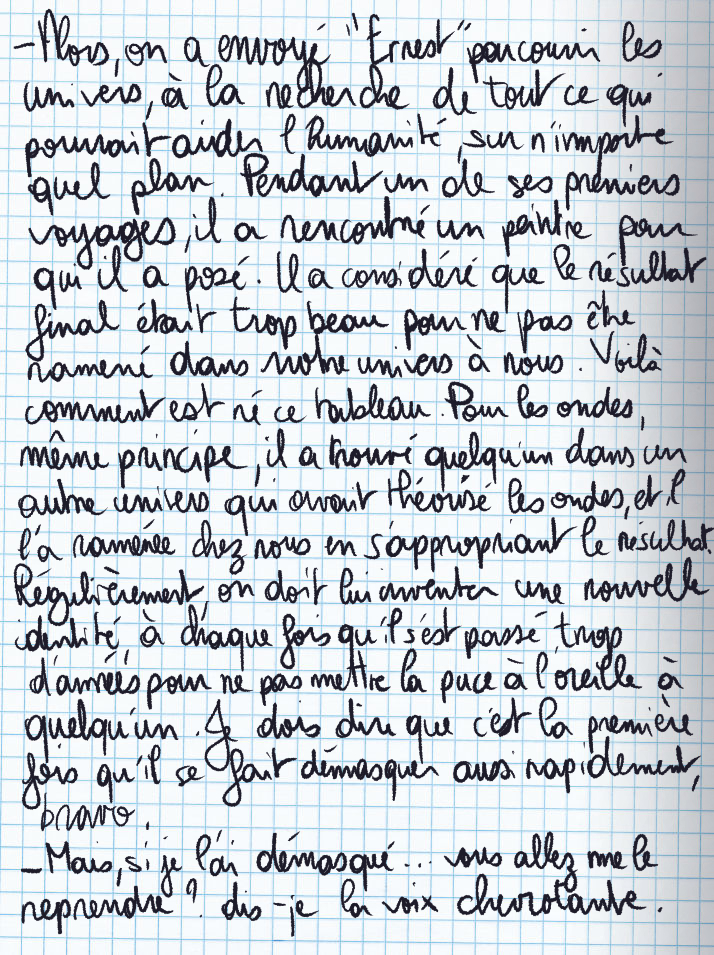 -Alors, on a envoyé "Ernest" parcourir les
univers, à la recherche de tout ce qui
pourrait aider l'humanité, sur n'importe
quel plan. Pendant un de ses premiers
voyages, il a rencontré un peintre pour
qui il a posé. Il a considéré que le résultat
final était trop beau pour ne pas être
ramené dans notre univers à nous. Voilà
comment est né ce tableau. Pour les ondes,
même principe, il a trouvé quelqu'un dans un
autre univers qui avait théorisé les ondes, et il
l'a ramenée chez nous en s'appropriant le résultat.
Régulièrement, on doit lui inventer une nouvelle
identité, à chaque fois qu'il s'est passé trop
d'années pour ne pas mettre la puce à l'oreille à
quelqu'un. Je dois dire que c'est la première
fois qu'il se fait démasquer aussi rapidement,
bravo.
-Mais, si je l'ai démasqué... vous allez me le
reprendre? dis-je la voix chevrotante.